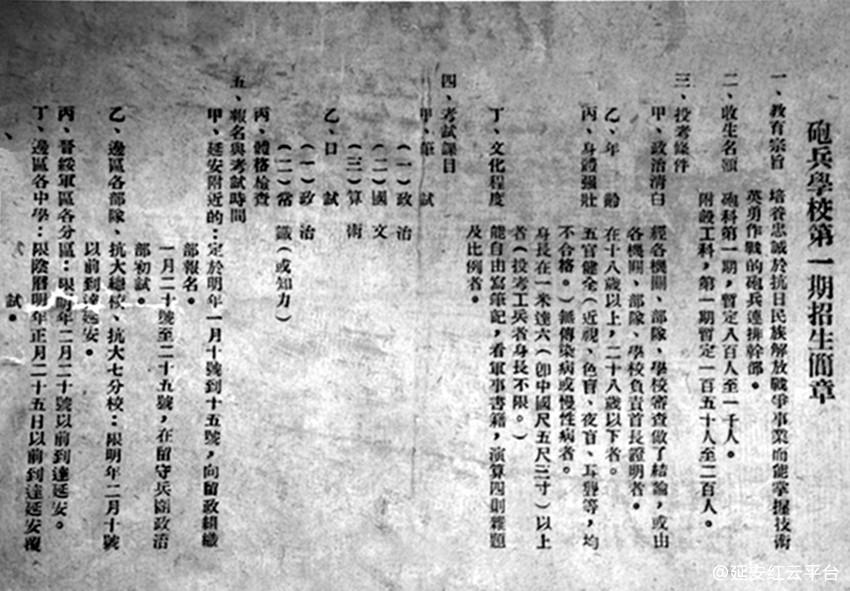 砲兵學校第一期招生簡章
一、教育宗旨　培養忠誠於抗日民族解放戰爭事業而能掌握技術
英勇作戰的砲兵連排幹部。
二、收生名額　砲科第一期，暫定八百人至一千人。
附設工科，第一期暫定一百五十人至二百人。
三、投考條件
甲、政治清白　經各機關、部隊、學校審查做了結論，或由
各機關、部隊、學校負責首長證明者。
乙、年　齡　在十八歲以上，二十八歲以下者。
丙、身體强壯　五官健全（近視、色盲、夜盲、耳聾等，均
不合格。）無傳染病或慢性病者。
身長在一米達六（卽中國尺五尺三寸）以上
者（投考工兵者身長不限。）
丁、文化程度　能自由寫筆記，看軍事書籍，演算四則雜題
及比例者。
四、考試課目
甲、筆　試
（一）政治
（二）國文
（三）算術
乙、口　試
（一）政治
（二）常識（或知力）
丙、體格檢查
五、報名與考試時間
甲、延安附近的：定於明年一月十號到十五號，向留政組織
部報名。
一月二十號至二十五號，在留守兵團政治
部初試。
乙、邊區各部隊、抗大總校、抗大七分校：限明年二月十號
以前到達延安。
丙、晉綏軍區各分區：限明年二月二十號以前到達延安。
丁、邊區各中學：限陰曆明年正月二十五日以前到達延安覆
試。
@延安红云平台